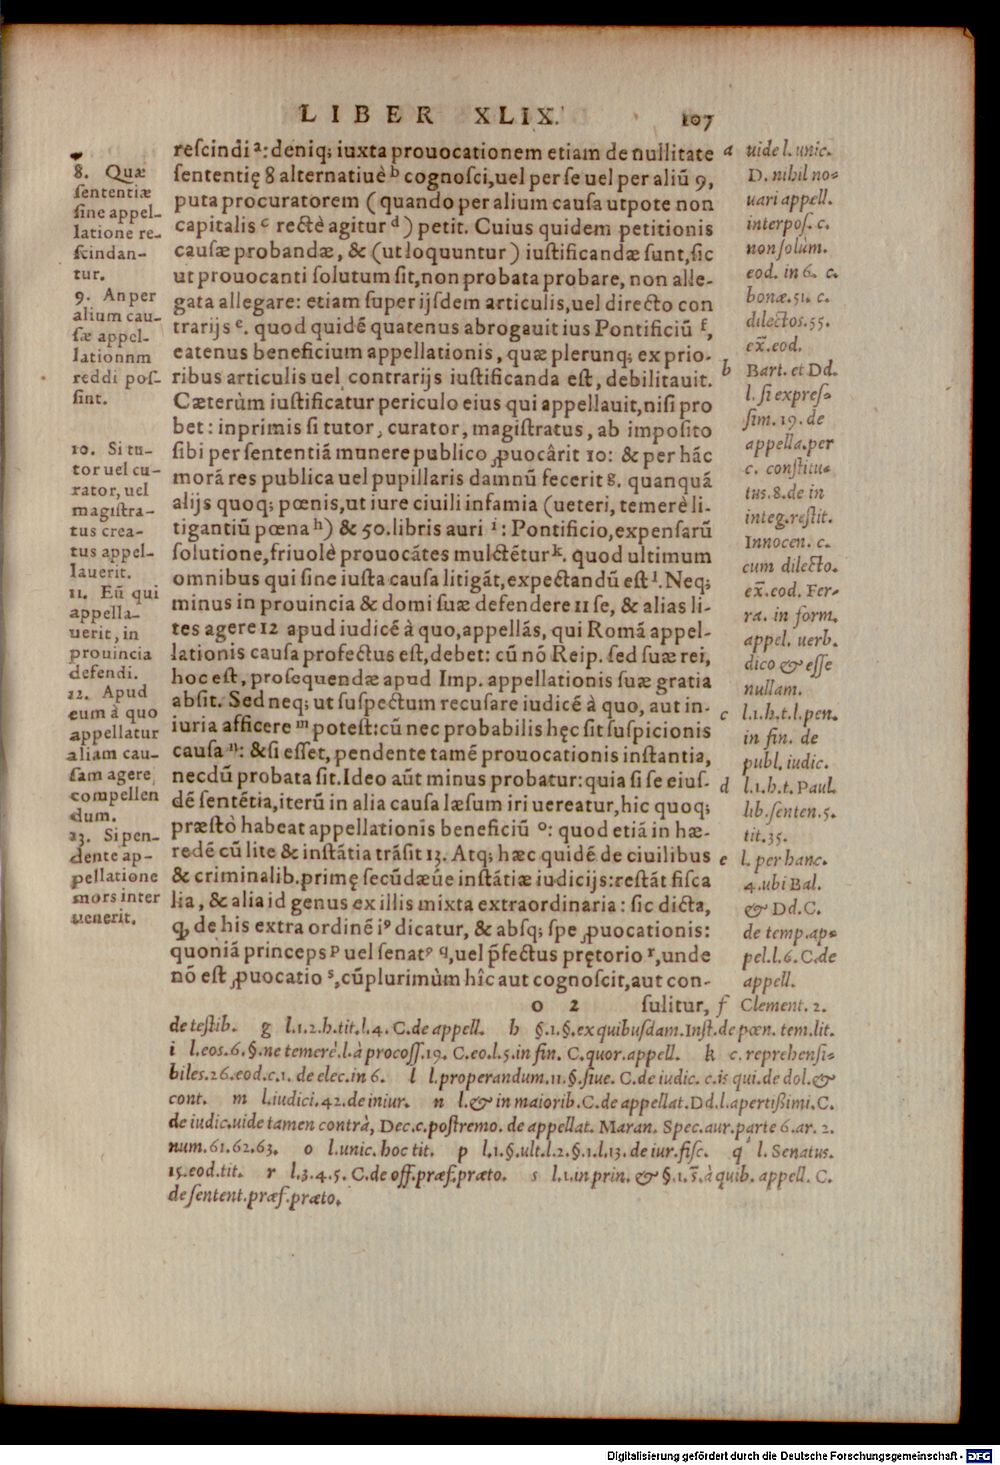 LIBER XLIX. 107
rescindi ᵃ: deniq; iuxta prouocationem etiam de nullitate
sententię 8 alternatiuè ᵇ cognosci, uel per se uel per aliũ 9,
puta procuratorem ( quando per alium causa utpote non
capitalis ᶜ rectè agitur ᵈ ) petit. Cuius quidem petitionis
causæ probandæ, & (ut loquuntur ) iustificandæ sunt, sic
ut prouocanti solutum sit, non probata probare, non alle-
gata allegare: etiam super ijsdem articulis, uel directo con
trarijs ᵉ. quod quidẽ quatenus abrogauit ius Pontificiũ ᶠ,
eatenus beneficium appellationis, quæ plerunq; ex prio-
ribus articulis uel contrarijs iustificanda est, debilitauit.
Cæterùm iustificatur periculo eius qui appellauit, nisi pro
bet: inprimis si tutor, curator, magistratus, ab imposito
sibi per sententiã munere publico ꝓuocârit 10: & per hãc
morã res publica uel pupillaris damnũ fecerit ᵍ. quanquã
alijs quoq; pœnis, ut iure ciuili infamia (ueteri, temerè li-
tigantiũ pœna ʰ) & 50. libris auri ⁱ: Pontificio, expensarũ
solutione, friuolè prouocãtes mulctẽtur ᵏ. quod ultimum
omnibus qui sine iusta causa litigãt, expectandũ est ˡ. Neq;
minus in prouincia & domi suæ defendere 11 se, & alias li-
tes agere 12 apud iudicẽ à quo, appellãs, qui Romã appel-
lationis causa profectus est, debet: cũ nõ Reip. sed suæ rei,
hoc est, prosequendæ apud Imp. appellationis suæ gratia
absit. Sed neq; ut suspectum recusare iudicẽ à quo, aut in-
iuria afficere ᵐ potest: cũ nec probabilis hęc sit suspicionis
causa ⁿ: & si esset, pendente tamẽ prouocationis instantia,
necdũ probata sit. Ideo aũt minus probatur: quia si se eius-
dẽ sentẽtia, iterũ in alia causa læsum iri uereatur, hic quoq;
præstò habeat appellationis beneficiũ ᵒ: quod etiã in hæ-
redẽ cũ lite & instãtia trãsit 13. Atq; hæc quidẽ de ciuilibus
& criminalib. primę secũdæúe instãtiæ iudicijs: restãt fisca
lia, & alia id genus ex illis mixta extraordinaria: sic dicta,
ꝙ de his extra ordinẽ iꝰ dicatur, & absq; spe ꝓuocationis:
quoniã princeps ᵖ uel senatꝰ q, uel p̃fectus prętorio ʳ, unde
nõ est ꝓuocatio ˢ, cũplurimùm hîc aut cognoscit, aut con-
o 2 sulitur,
8. Quæ
sententiæ
sine appel-
latione re-
scindan-
tur.
9. An per
alium cau-
sæ appel-
lationnm
reddi pos-
sint.
10. Si tu-
tor uel cu-
rator, uel
magistra-
tus crea-
tus appel-
lauerit.
11. Eũ qui
appella-
uerit, in
prouincia
defendi.
12. Apud
eum à quo
appellatur
aliam cau-
sam agere
compellen
dum.
13. Si pen-
dente ap-
pellatione
mors inter
uenerit.
a uide l. unic.
D. nihil no-
uari appell.
interpos. c.
non solùm.
eod. in 6. c.
bonæ. 51. c.
dilectos. 55.
ex̃. eod.
b Bart. et Dd.
l. si expres-
sim. 19. de
appella. per
c. constitu-
tus. 8. de in
integ. restit.
Innocen. c.
cum dilecto.
ex̃. eod. Fer-
ra. in form.
appel. uerb.
dico & esse
nullam.
c l. 1. h. t. l. pen.
in fin. de
publ. iudic.
d l. 1. h. t. Paul.
lib. senten. 5.
tit. 35.
e l. per hanc.
4. ubi Bal.
& Dd. C.
de temp. ap-
pel. l. 6. C. de
appell.
f Clement. 2.
de testib. g l. 1. 2. h. tit. l. 4. C. de appell. h §. 1. §. ex quibusdam. Inst. de pœn. tem. lit.
i l. eos. 6. §. ne temerè. l. à procoss. 19. C. eo. l. 5. in fin. C. quor. appell. k c. reprehensi-
biles. 26. eod. c. 1. de elec. in 6. l l. properandum. 11. §. siue. C. de iudic. c. is qui. de dol. &
cont. m l. iudici. 42. de iniur. n l. & in maiorib. C. de appellat. Dd. l. apertißimi. C.
de iudic. uide tamen contrà, Dec. c. postremo. de appellat. Maran. Spec. aur. parte 6. ar. 2.
num. 61. 62. 63. o l. unic. hoc tit. p l. 1. §. ult. l. 2. §. 1. l. 13. de iur. fisc. q l. Senatus.
15. eod. tit. r l. 3. 4. 5. C. de off. præf. præto. s l. 1. in prin. & §. 1. s̃. à quib. appell. C.
de sentent. præf. præto.
Digitalisierung gefördert durch die Deutsche Forschungsgemeinschaft - DFG